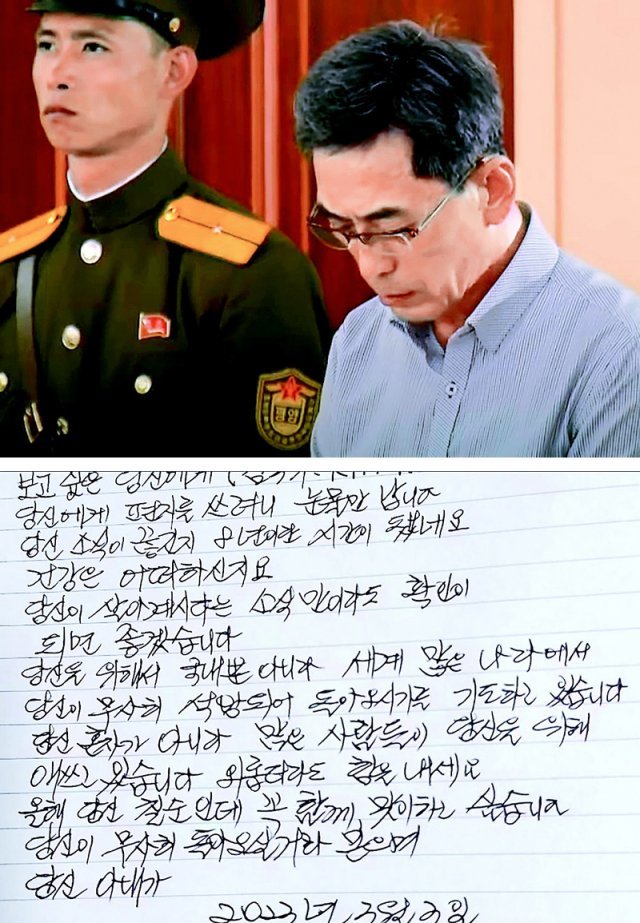 보고 싶은 당신에게
당신에게 편지를 쓰려하니 눈물만 납니다
당신 소식이 끊긴지 8년이란 시간이 됐네요
건강은 어떠하신지요
당신이 살아계시다는 소식만이라도 확인이
되면 좋겠습니다
당신을 위해서 국내뿐 아니라 세계 많은 나라에서
당신이 무사히 석방되어 돌아오시기를 기도하고 있습니다
당신 혼자가 아니라 많은 사람들이 당신을 위해
애쓰고 있습니다 외롭더라도 힘을 내세요
올해 당신 칠순인데 꼭 함께 맞이하고 싶습니다
당신이 무사히 돌아오실거라 믿으며
당신 아내가
2023년 3월 3일